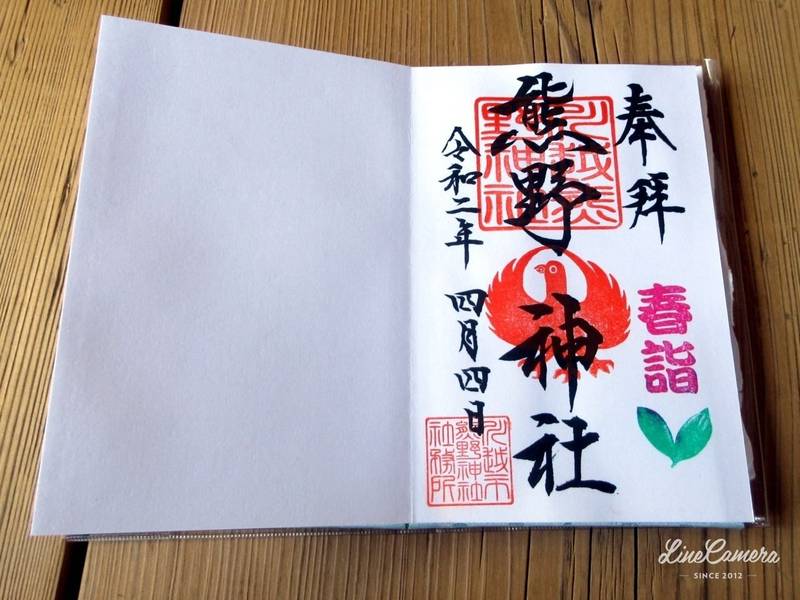 奉拝
春詣
熊野神社
川越熊
野神社
令和二年 四月四日
川越市
熊野神社
社務所
LineCamera
SINCE 2012